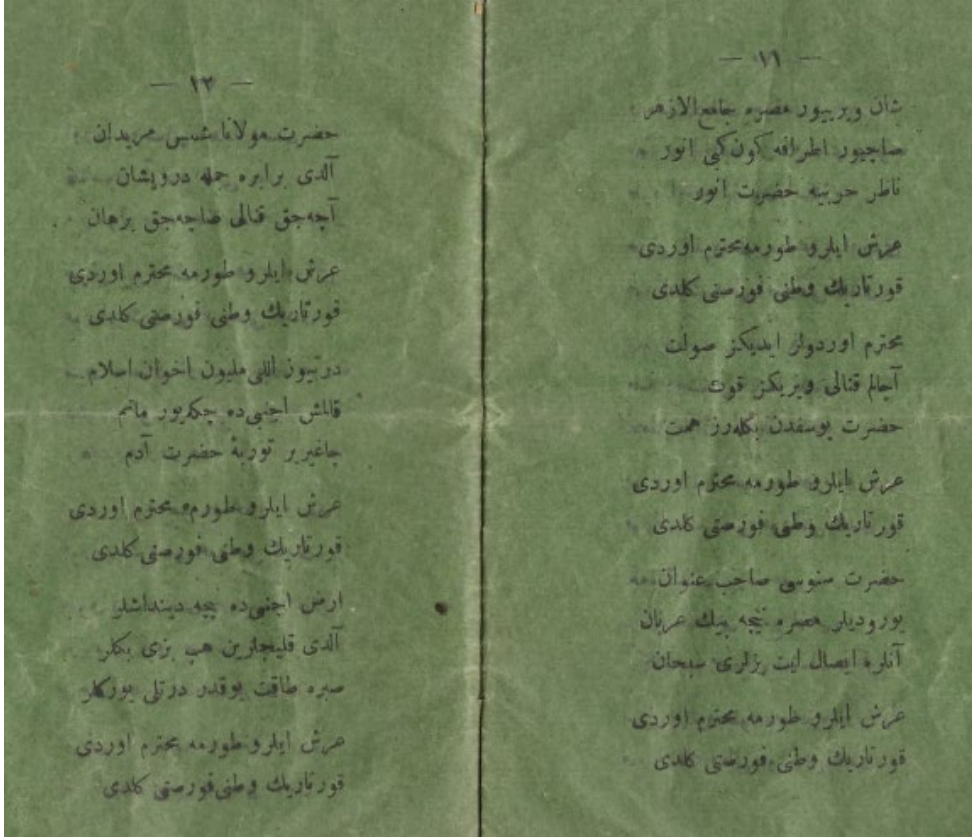 — ١١ —
شان ویرییور مصره جامع الازهر
صاچیور اطرافه کون کبی انور
ناظر حربیه حضرت انور
عرش ایلرو طورمه محترم اوردی
قورتاریك وطنی فورصتی کلدی
محترم اوردولر ایدیکز صولت
آچالم قنالی ویریکز قوت
حضرت یوسفدن بکلەرز همت
عرش ایلرو طورمه محترم اوردی
قورتاریك وطنی فورصتی کلدی
حضرت سنوسی صاحب عنوان
یورودیلر مصره نیجه بیك عربان
آنلره ایصال ایت بزلری سبحان
عرش ایلرو طورمه محترم اوردی
قورتاریك وطنی فورصتی کلدی
— ١٢ —
حضرت مولانا شمسی مریدان
آلدی برابره جمله درویشان
آچەجق قنالی صاچەجق برهان
عرش ایلرو طورمه محترم اوردی
قورتاریك وطنی فورصتی کلدی
درتیوز اللی ملیون اخوان اسلام
قالمش اجنبی ده چکەیور ماتم
چاغیریر توربۀ حضرت آدم
عرش ایلرو طورمه محترم اوردی
قورتاریك وطنی فورصتی کلدی
ارض اجنبی ده نیجه دینداشلر
آلدی قلیجلرین هب بزی بکلر
صبره طاقت یوقدر درتلی یورکلر
عرش ایلرو طورمه محترم اوردی
قورتاریك وطنی فورصتی کلدی